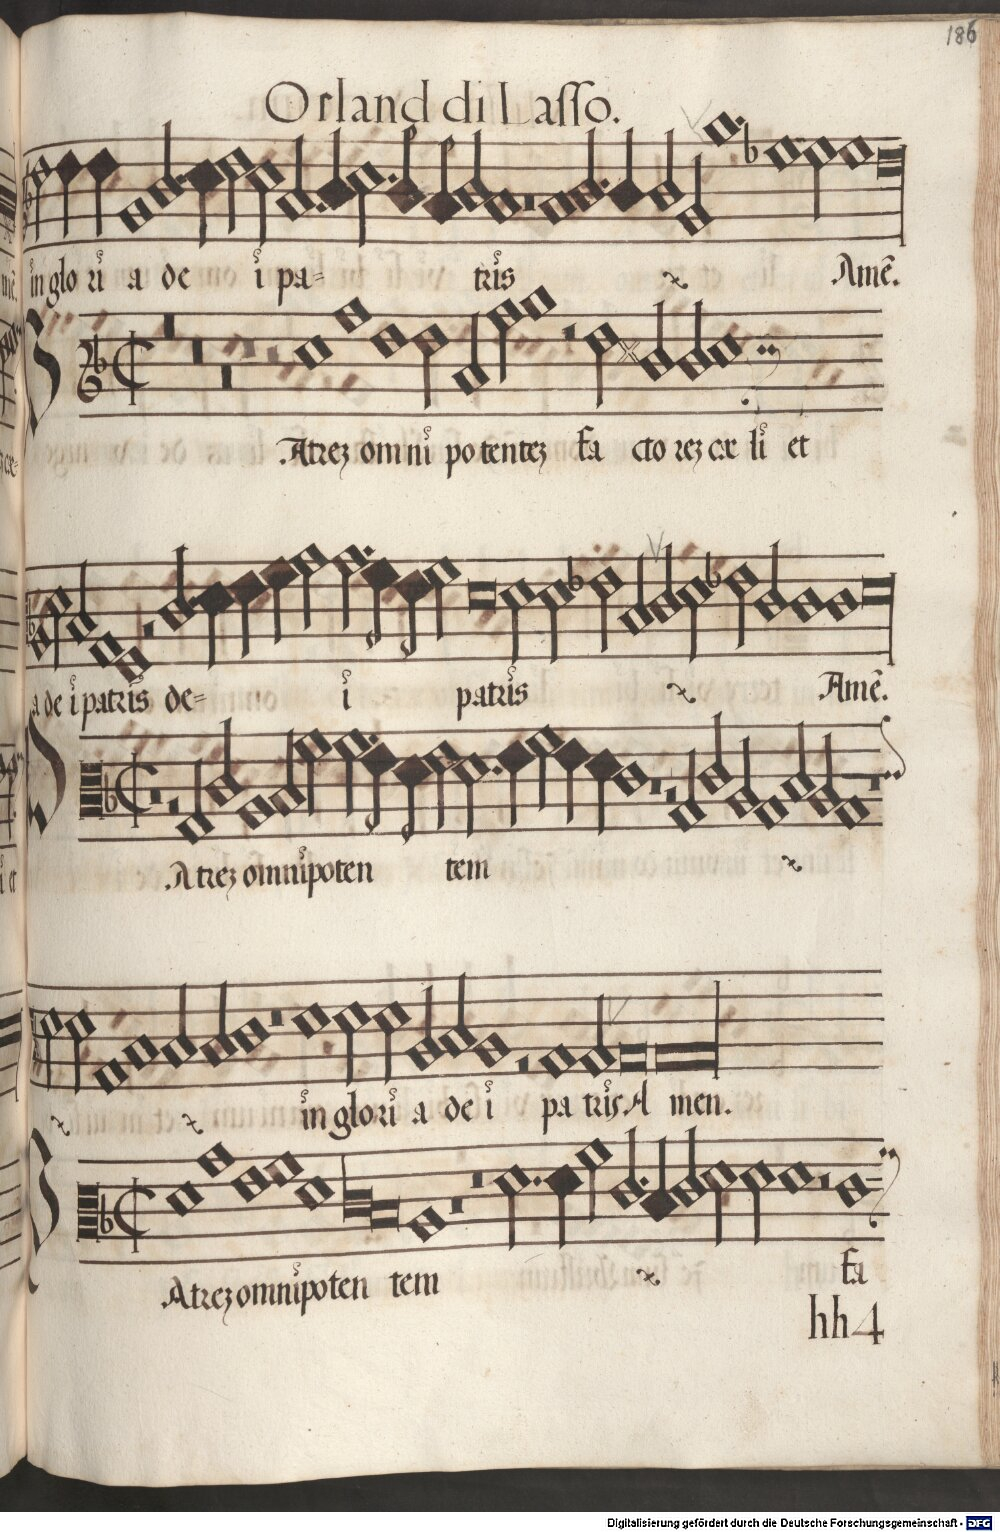 186
Orland di Lasso.
in glo ri a de i pa= tris Amē.
Atrez omni potentez fa cto rez cæ li et
a de i patris de= i patris Amē.
Atrez omnipoten tem
in glori a de i pa tris A men.
Atrez omnipoten tem fa
hh4
Digitalisierung gefördert durch die Deutsche Forschungsgemeinschaft - DFG